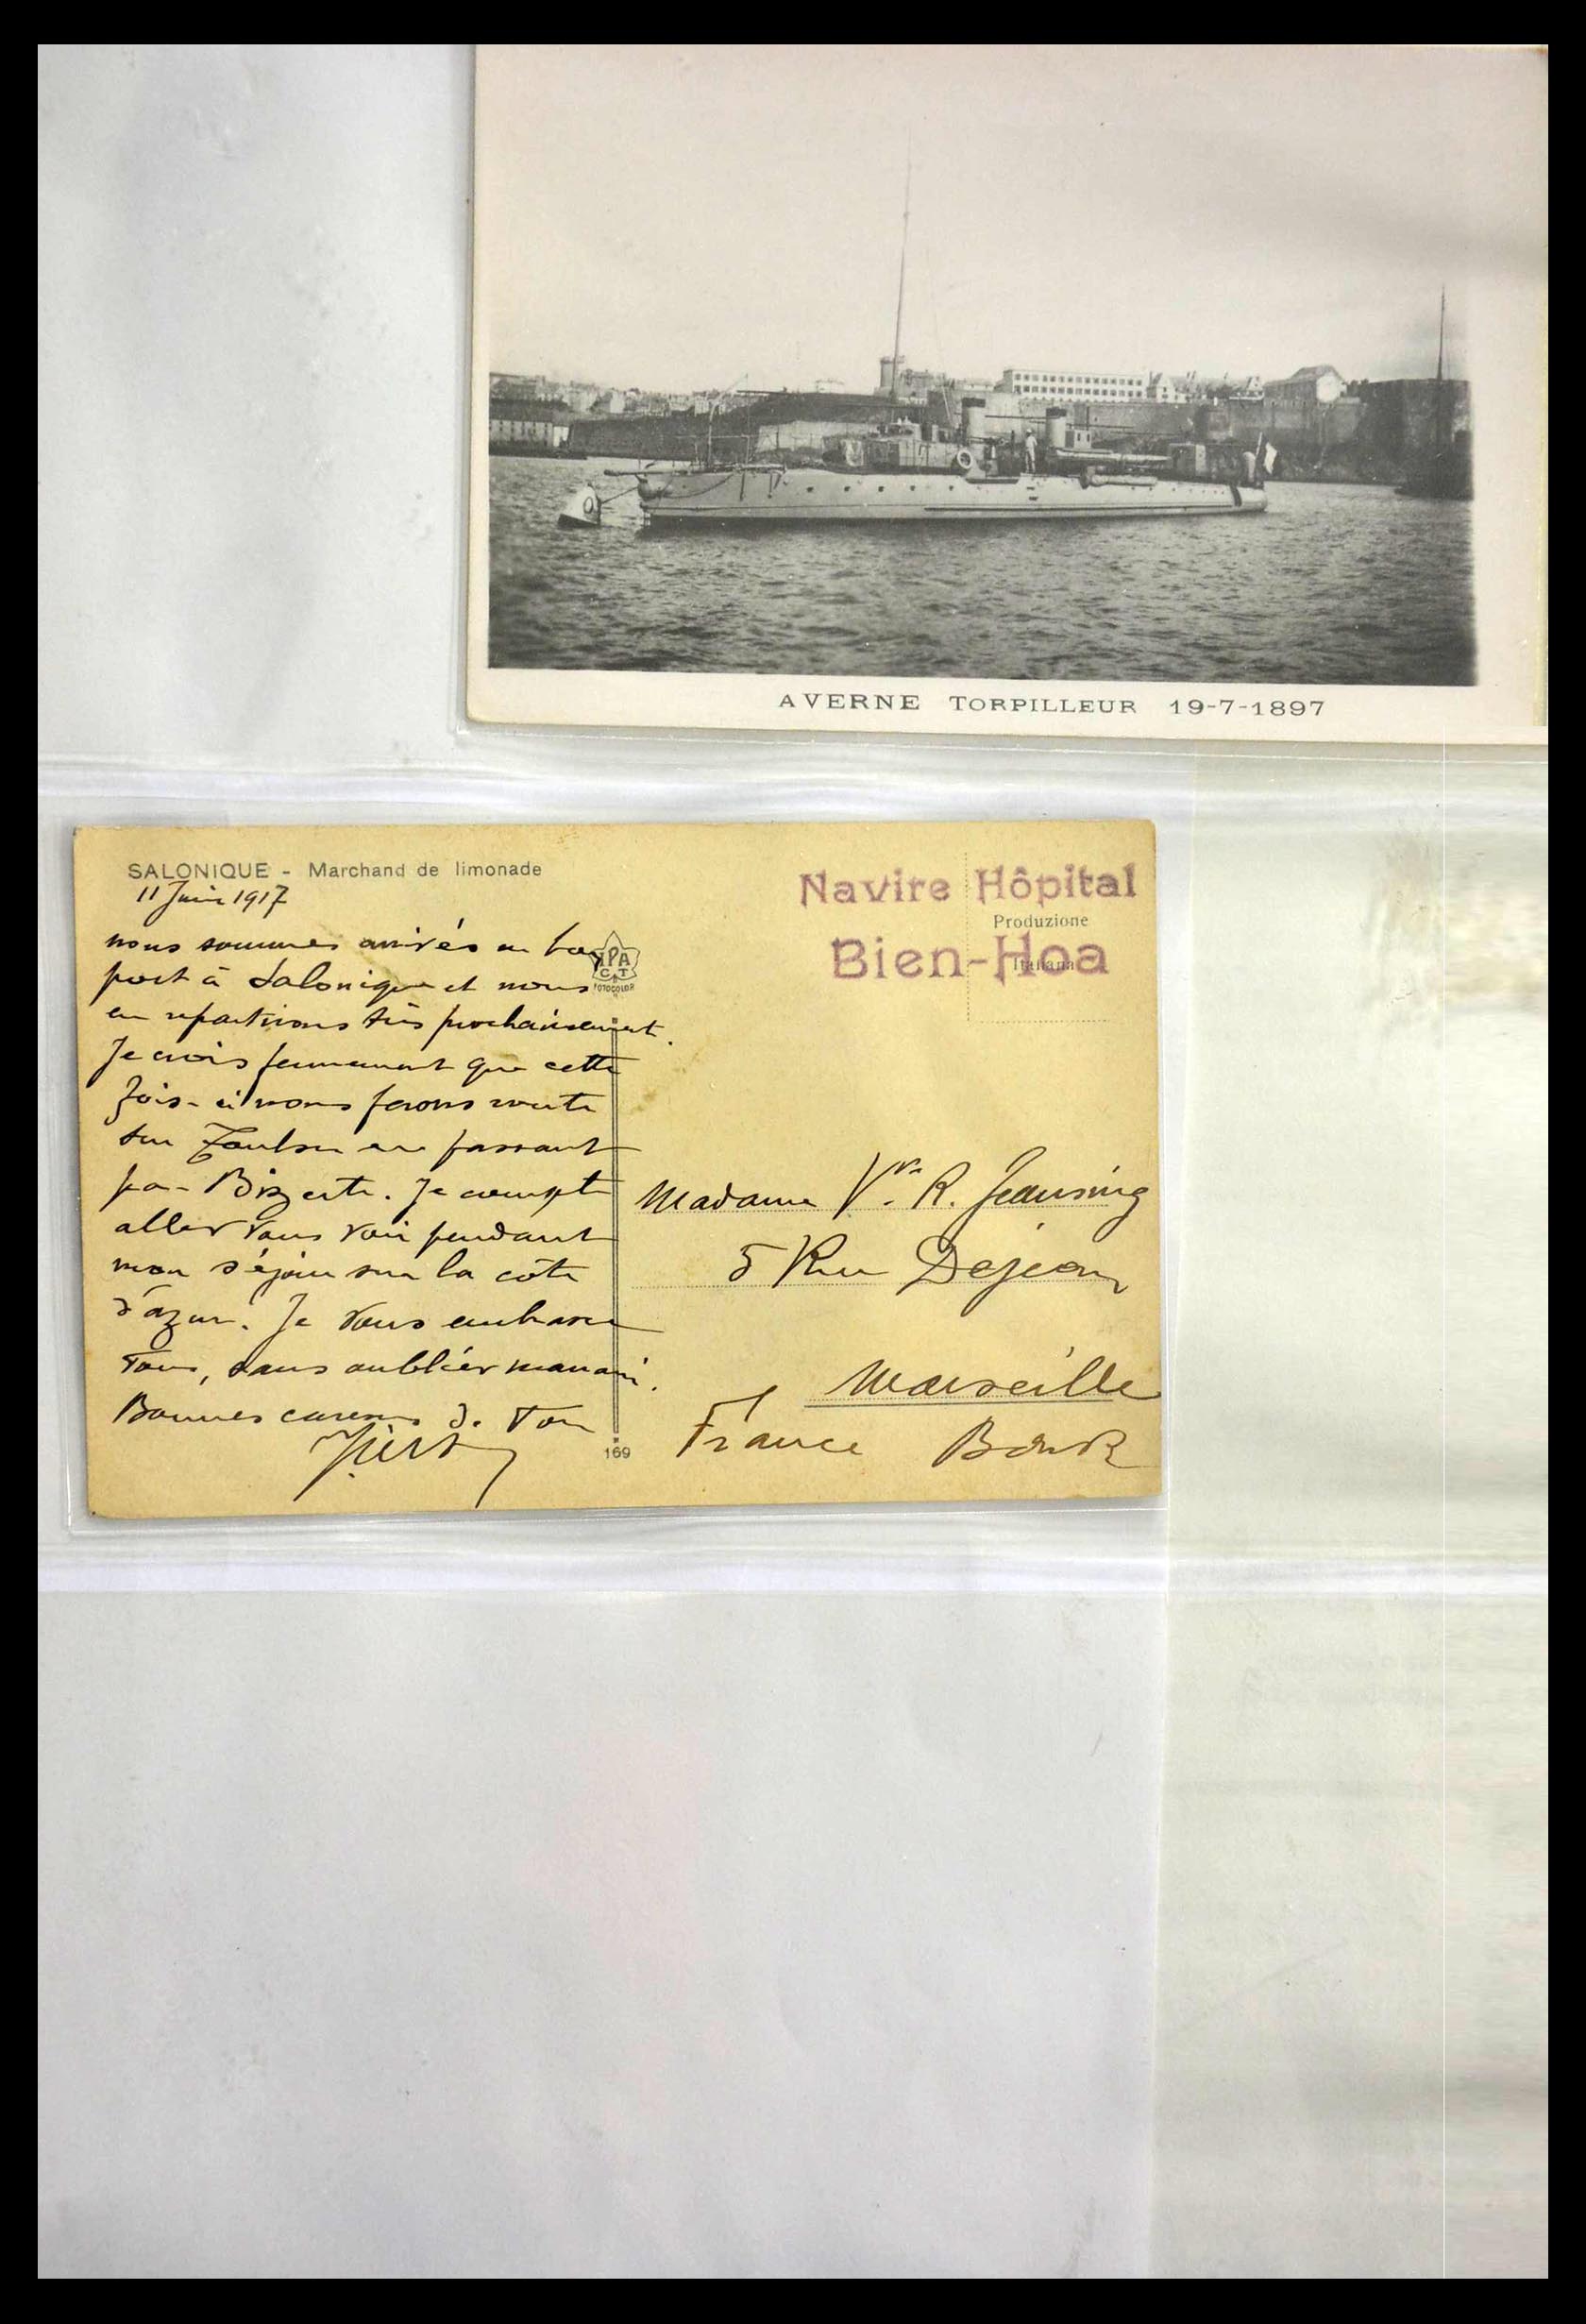 AVERNE TORPILLEUR 19-7-1897
SALONIQUE - Marchand de limonade
11 Juin 1917
nous sommes arrivés a bon
port à Salonique et nous
en repartirons très prochainement.
Je crois fermement que cette
fois-ci nous ferons route
sur Toulon en passant
par Bizerte. Je compte
aller vous voir pendant
mon séjour sur la côte
d'azur. Je vous embrasse
Tous, sans oublier manani.
Bonnes caresses de Ton
IPA
CT
FOTOCOLOR
169
Navire Hôpital
Produzione
Bien-Hoa
Italiana
Madame Vve R.
5 Rue Dejean
Marseille
France BduR